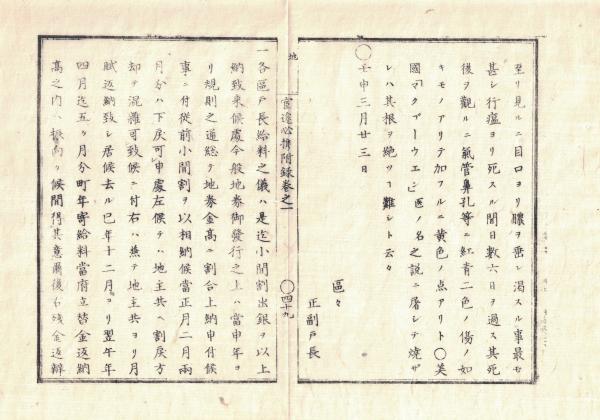 至リ見ルニ目口ヨリ膿ヲ垂レ渇スル事最モ
甚シ行瘟ヨリ死スル間日數六日ヲ過ス其死
後ヲ觀ルニ氣管鼻孔等ニ紅青二色ノ傷ノ如
キモノアリテ加フルニ黄色ノ点アリト〇美
國マクブーウエン医ノ名之説ニ屠シテ燒ザ
レハ其根ヲ絶ツ難シト云々
〇壬申三月廿三日
區々
正副戸長
地
官途必携附録巻之一
〇四十九
一各區戸長給料之儀ハ是迄小間割出銀ヲ以上
納致来候處今般地券御發行之上ハ當申年ヨ
リ規則之通總テ地券金高ニ割合上納申付候
事ニ付従前小間割ヲ以相納候當正月二月兩
月分ハ下戻可申處左候テハ地主共ヘ割戻方
却テ混雑可致候ニ付右ハ兼テ地主共ヨリ月
賦返納致シ居候去ル巳年十二月ヨリ翌午年
四月迄五ヶ月分町年寄給料當府立替金返納
高之内ハ振向ヶ候間得其意爾後右残金返辨